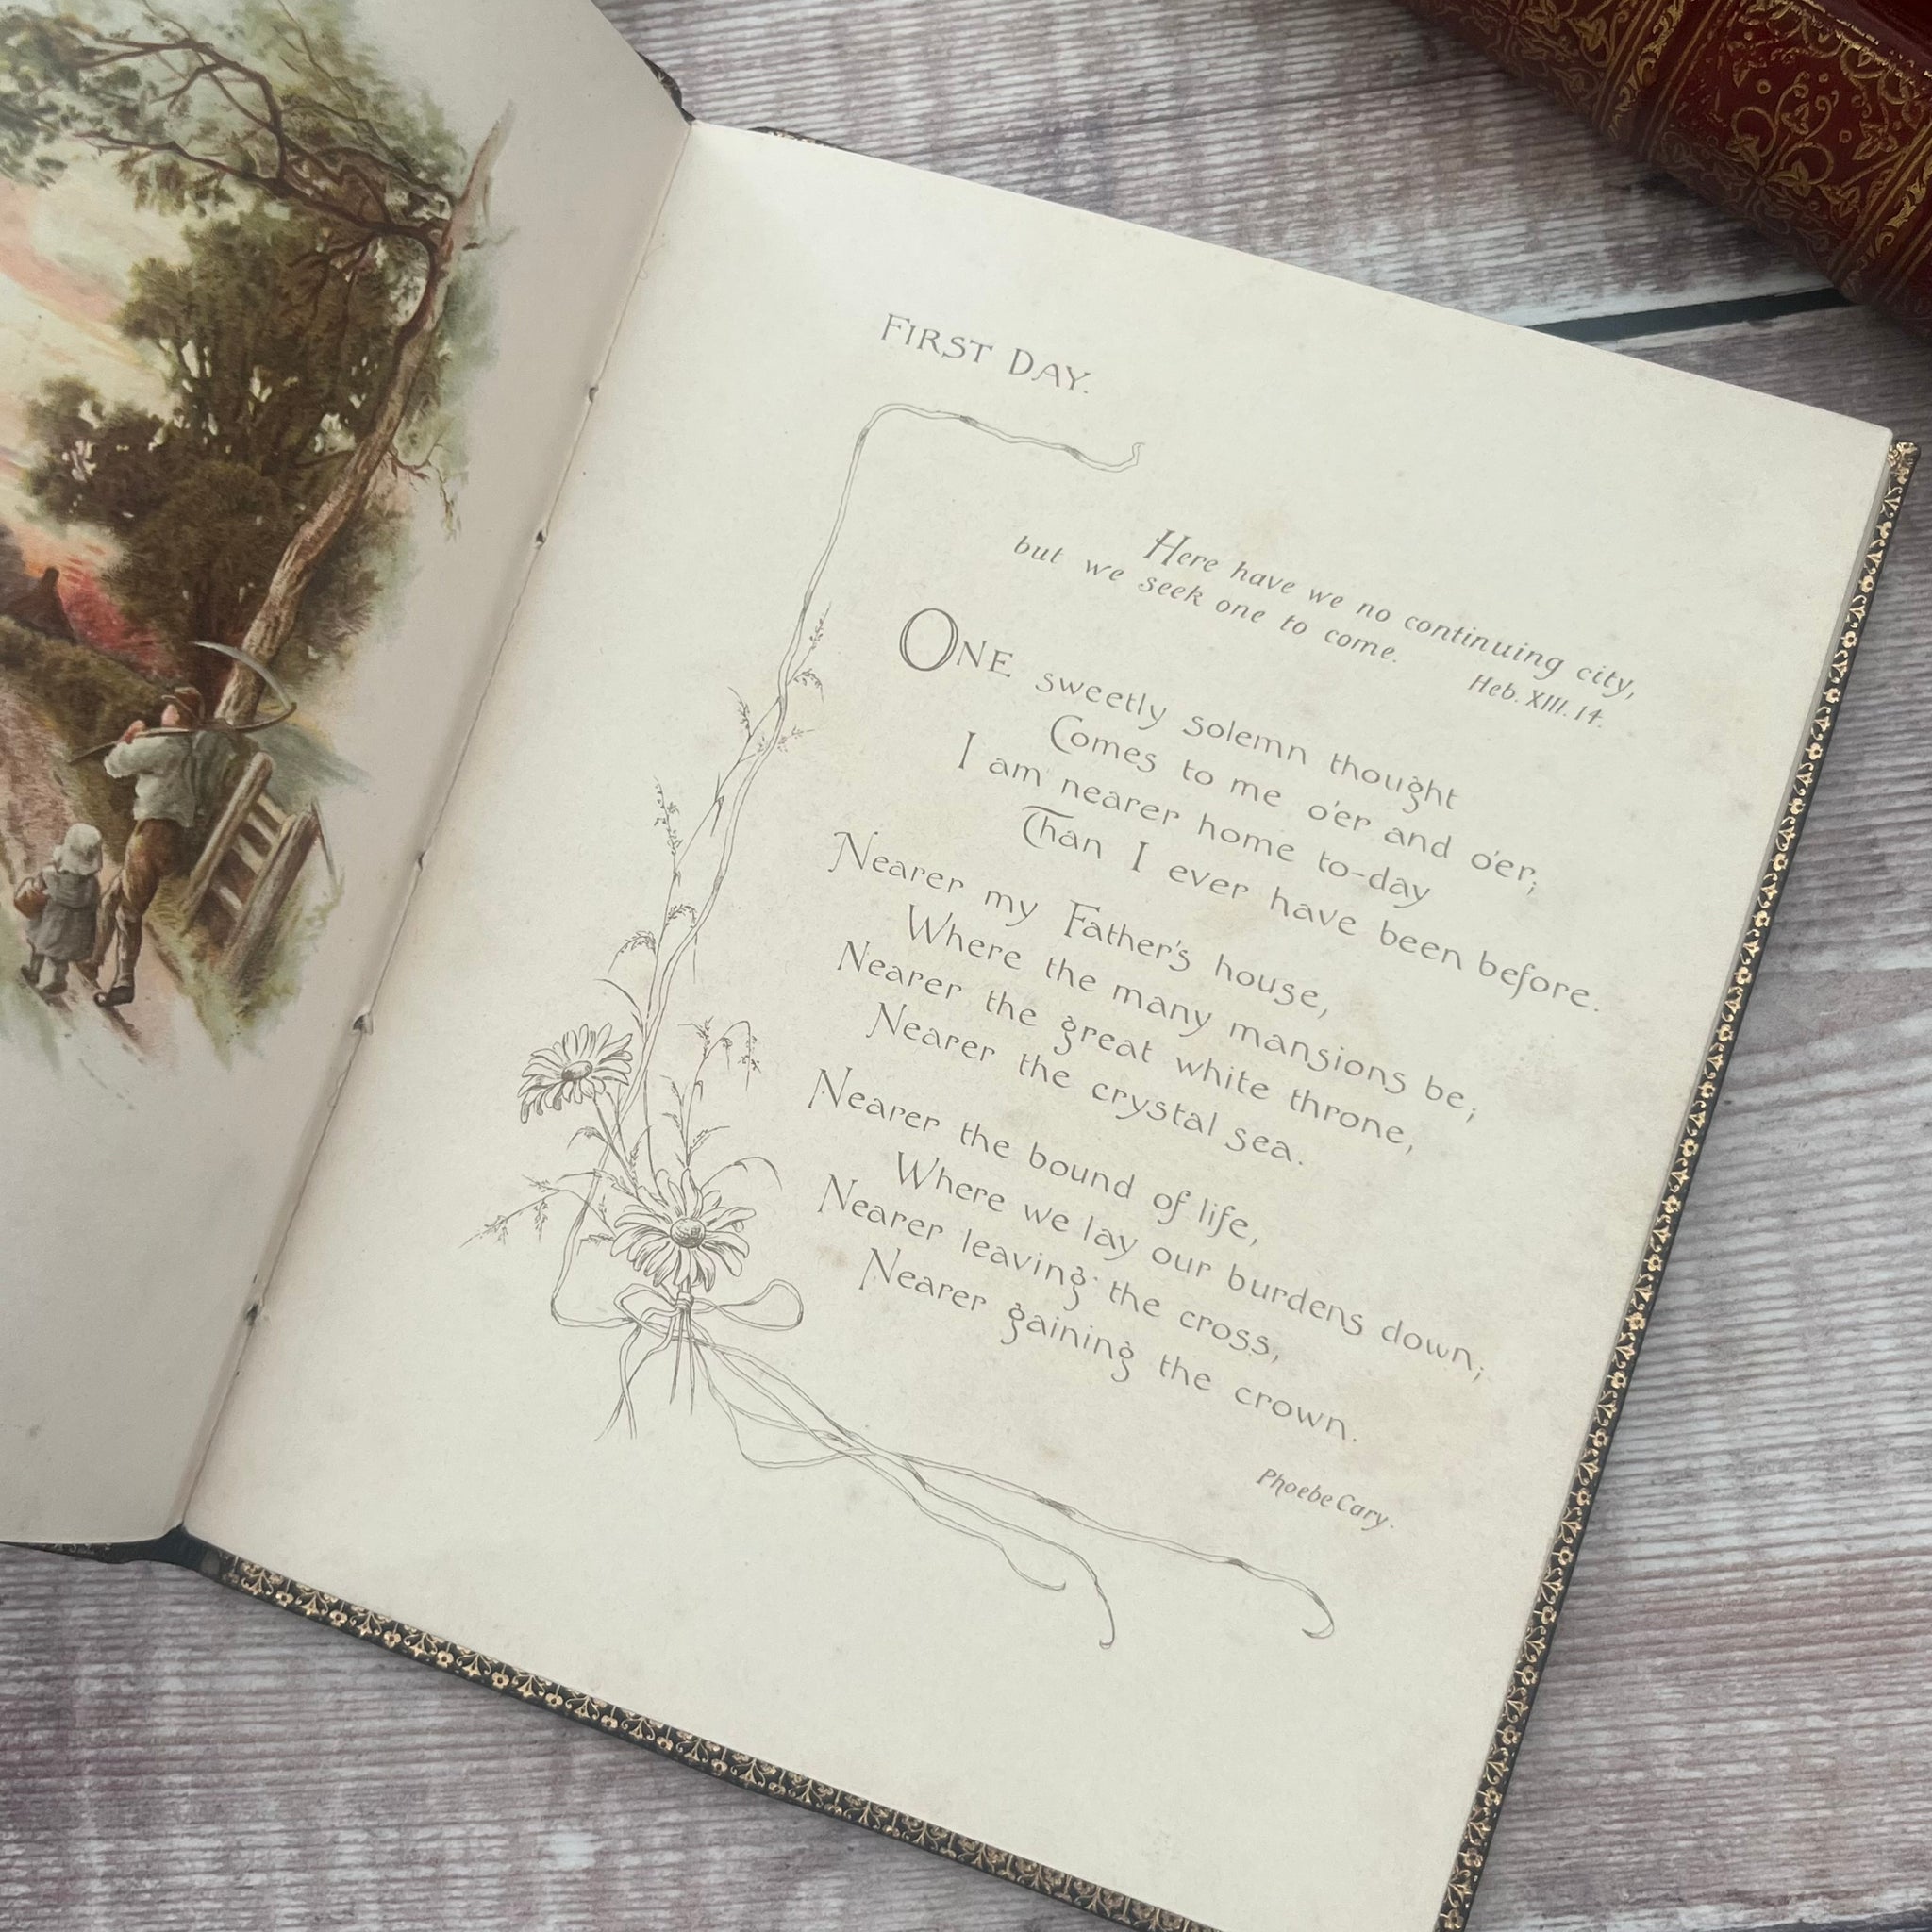 FIRST DAY.
Here have we no continuing city,
but we seek one to come.
Heb. XIII. 14.
ONE sweetly solemn thought
Comes to me o'er and o'er;
I am nearer home to-day
Than I ever have been before.
Nearer my Father's house,
Where the many mansions be;
Nearer the great white throne,
Nearer the crystal sea.
Nearer the bound of life,
Where we lay our burdens down;
Nearer leaving the cross,
Nearer gaining the crown.
Phoebe Cary.